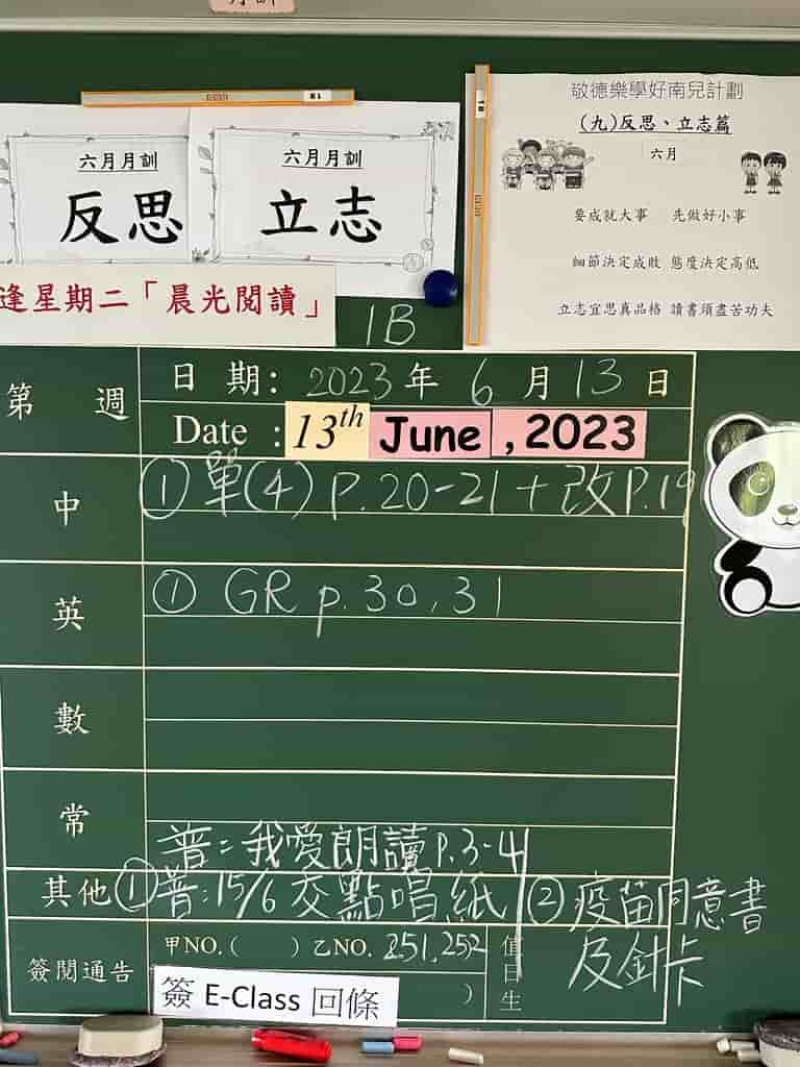 敬德樂學好南兒計劃
(九)反思、立志篇
六月
要成就大事 先做好小事
細節決定成敗 態度決定高低
立志宜思真品格 讀書須盡苦功夫
六月月訓
反思
六月月訓
立志
逢星期二「晨光閱讀」
1B
第 週
日 期: 2023年 6月13日
Date : 13th June ,2023
中
① 單(4) P.20-21 + 改P.19
英
① GR p.30,31
數
常
普:我愛朗讀P.3-4
其他
①普:15/6 交點唱紙
②疫苗同意書
及針卡
簽閱通告
甲NO.( ) 乙NO. 251,252
值日生
簽 E-Class 回條
)